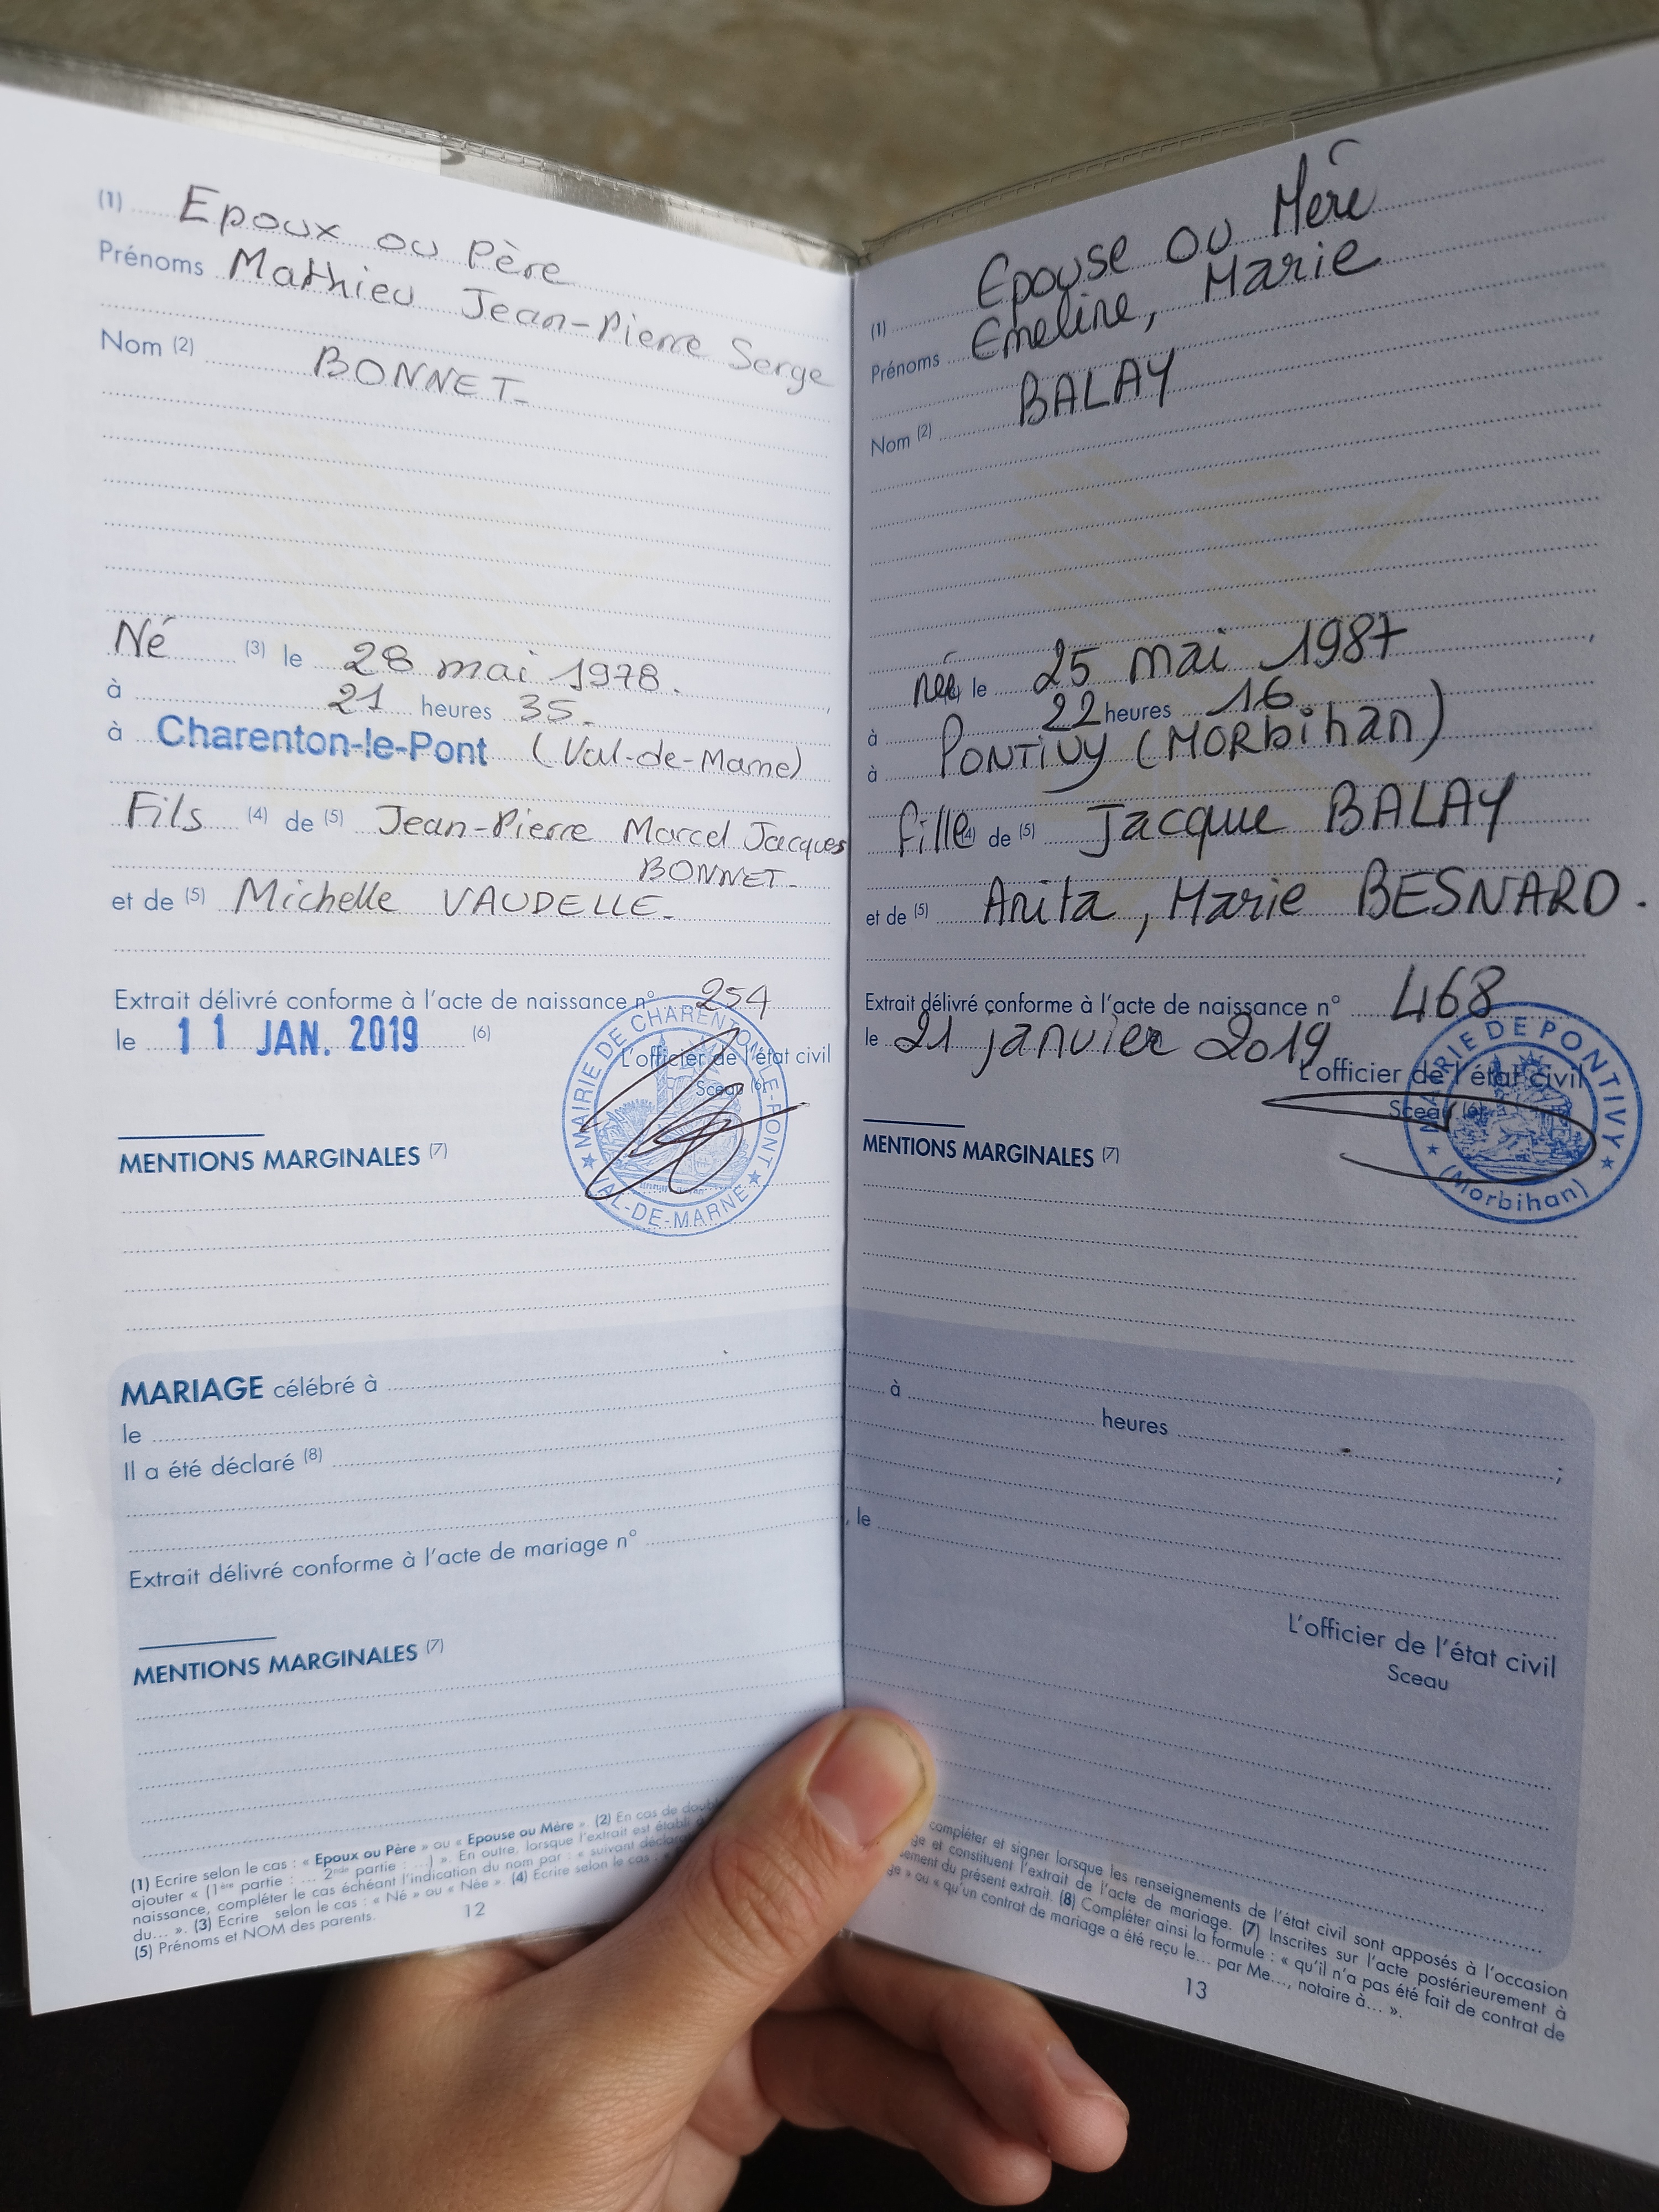 (1) Epoux ou Père
Prénoms Mathieu Jean-Pierre Serge
Nom (2) BONNET
Né (3) le 28 mai 1978.
à 21 heures 35.
à Charenton-le-Pont (Val-de-Marne)
Fils (4) de (5) Jean-Pierre Marcel Jacques
BONNET.
et de (5) Michelle VAUDELLE.
Extrait délivré conforme à l'acte de naissance n° 254
le 11 JAN. 2019 (6)
L'officier de l'état civil
Sceau (6)
MAIRIE DE CHARENTON-LE-PONT
VAL-DE-MARNE
MENTIONS MARGINALES (7)
MARIAGE célébré à
le
Il a été déclaré (8)
Extrait délivré conforme à l'acte de mariage n°
MENTIONS MARGINALES (7)
(1) Ecrire selon le cas : « Epoux ou Père » ou « Epouse ou Mère ». (2) En cas de
ajouter « (1ère partie : ... 2nde partie : ...) ». En outre, lorsque l'extrait est établi
naissance, compléter le cas échéant l'indication du nom par : « suivant
du... ». (3) Ecrire selon le cas : « Né » ou « Née ». (4) Ecrire selon le cas :
(5) Prénoms et NOM des parents.
12
(1) Epouse ou Mère
Prénoms Emeline, Marie
Nom (2) BALAY
née le 25 mai 1987,
à 22 heures 16
à PONTIVY (MORbihan)
fille (4) de (5) Jacque BALAY
et de (5) Anita, Marie BESNARD.
Extrait délivré conforme à l'acte de naissance n° 468
le 21 janvier 2019
L'officier de l'état civil
Sceau (6)
MAIRIE DE PONTIVY
(Morbihan)
MENTIONS MARGINALES (7)
à
heures ;
, le
L'officier de l'état civil
Sceau
compléter et signer lorsque les renseignements de l'état civil sont apposés à l'occasion
et constituent l'extrait de l'acte de mariage. (7) Inscrites sur l'acte postérieurement à
du présent extrait. (8) Compléter ainsi la formule : « qu'il n'a pas été fait de contrat de
» ou « qu'un contrat de mariage a été reçu le... par Me..., notaire à... ».
13